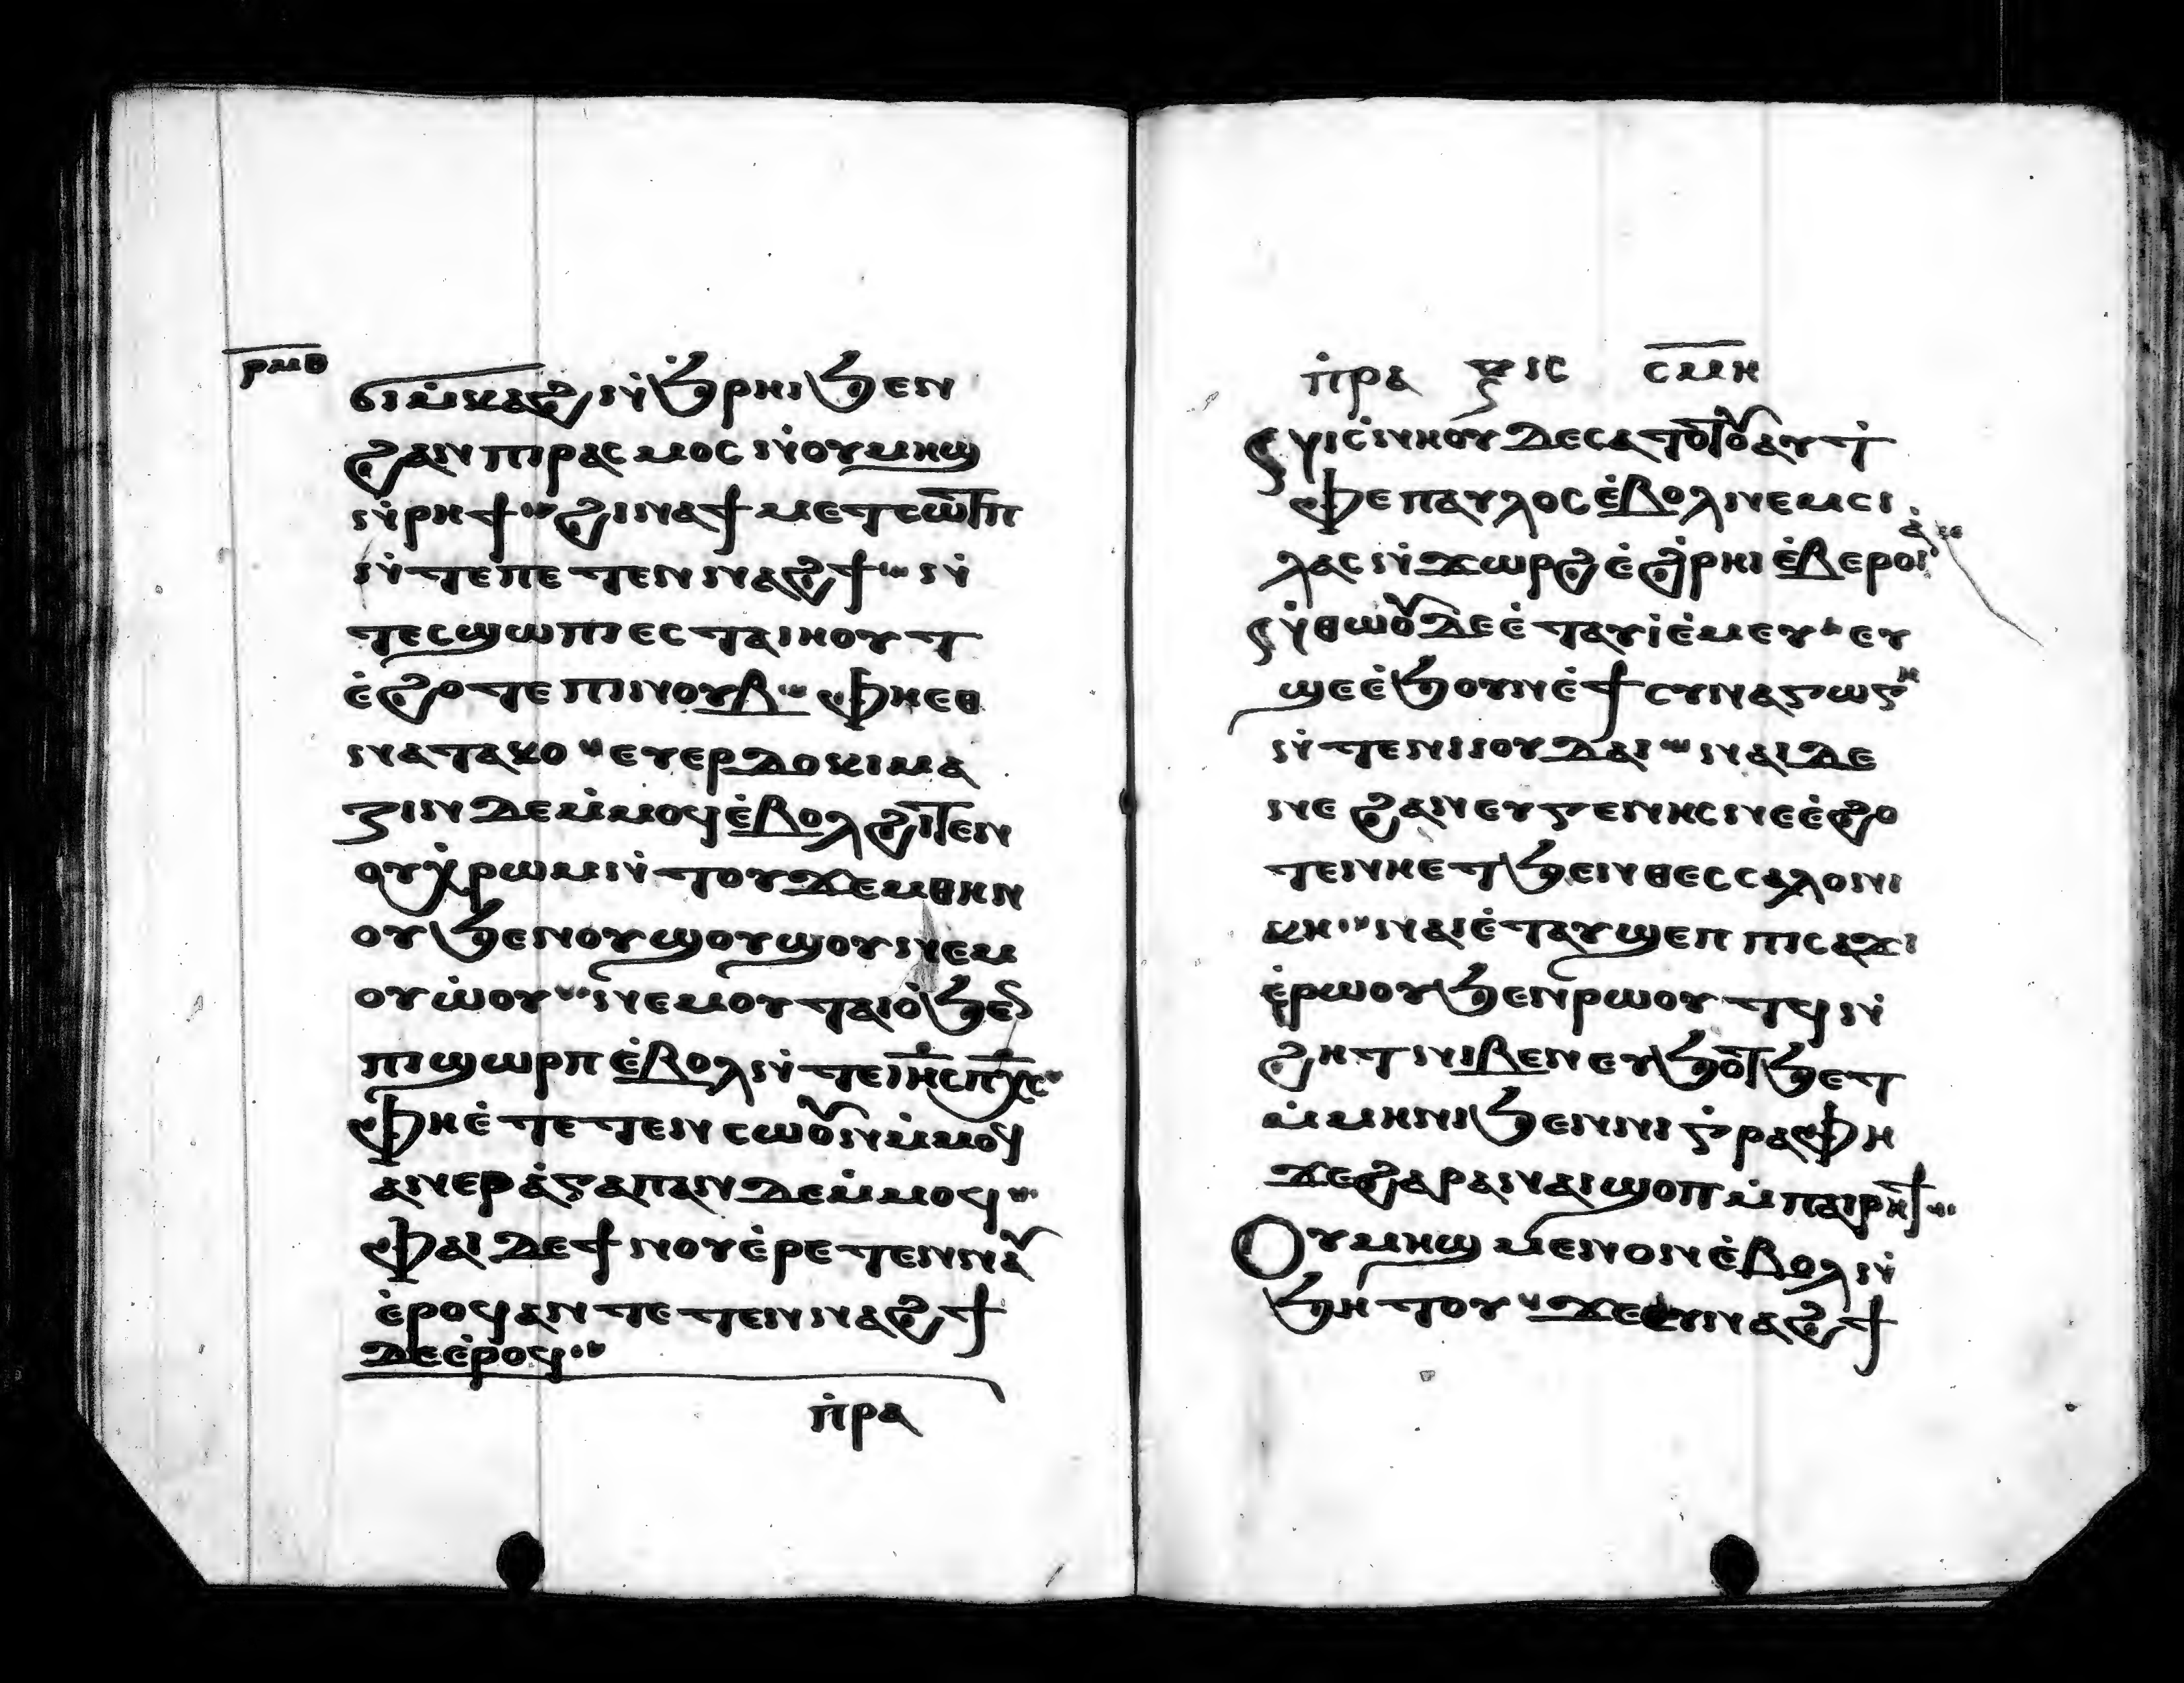 ⲣⲙⲑ
ϭⲓⲙ̀ⲕⲁϩ ⲛ̀ϧ̀ⲣⲏⲓ ϧⲉⲛ
ϩⲁⲛ ⲡⲓⲣⲁⲥⲙⲟⲥ ⲛ̀ⲟⲩⲙⲏϣ
ⲛ̀ⲣⲏϯ ϩⲓⲛⲁ ϯⲙⲉⲧⲥⲱⲧⲡ
ⲛ̀ⲧⲉ ⲡⲉⲧⲉⲛⲛⲁϩϯ ⲛ̀
ⲧⲉⲥϣⲱⲡⲓ ⲉⲥⲧⲁⲓⲏⲟⲩⲧ
ⲉ̀ϩⲟⲧⲉ ⲡⲓⲛⲟⲩⲃ ⲫⲏⲉⲑ
ⲛⲁⲧⲁⲕⲟ ⲉⲩⲉⲣⲇⲟⲕⲓⲙⲁ
ⲍⲓⲛ ⲇⲉ ⲙ̀ⲙⲟϥ ⲉ̀ⲃⲟⲗ ϩⲓⲧⲉⲛ
ⲟⲩⲭ̀ⲣⲱⲙ ⲛ̀ⲧⲟⲩϫⲉⲙⲑⲏⲛ
ⲟⲩ ϧⲉⲛ ⲟⲩϣⲟⲩϣⲟⲩ ⲛⲉⲙ
ⲟⲩⲱ̀ⲟⲩ ⲛⲉⲙ ⲟⲩⲧⲁⲓⲟ̀ ϧⲉⲛ
ⲡⲓϭⲱⲣⲡ ⲉ̀ⲃⲟⲗ ⲛ̀ⲧⲉ ⲓⲏⲥ ⲡⲭⲥ
ⲫⲏⲉ̀ⲧⲉⲧⲉⲛⲥⲱⲟⲩⲛ ⲙ̀ⲙⲟϥ
ⲁⲛ ⲉⲣⲁ̀ⲅⲁⲡⲁⲛ ⲇⲉ ⲙ̀ⲙⲟϥ
ⲫⲁⲓ ⲇⲉ ϯⲛⲟⲩ ⲉ̀ⲣⲉⲧⲉⲛⲛⲁⲩ
ⲉ̀ⲣⲟϥ ⲁⲛ ⲧⲉⲧⲉⲛⲛⲁϩϯ
ⲇⲉ ⲉ̀ⲣⲟϥ
ⲡ̀ⲣⲁ
ⲡ̀ⲣⲁ ⲝⲓⲥ ⲥⲙⲏ
ⲛⲓⲥ̀ⲛⲏⲟⲩ ⲇⲉ ⲥⲁⲧⲟⲧⲟⲩ ⲁⲩⲧ̀
ⲫⲉ ⲡⲁⲩⲗⲟⲥ ⲉ̀ⲃⲟⲗ ⲛⲉⲙ ⲥⲓ
ⲗⲁⲥ ⲛ̀ϫⲱⲣϩ ⲉ̀ϩ̀ⲣⲏⲓ ⲉ̀ⲃⲉⲣⲟⲓⲁ̀
ⲛ̀ⲑⲱⲟⲩ ⲇⲉ ⲉ̀ⲧⲁⲩⲓ̀ ⲉ̀ⲙⲉⲩ ⲉⲩ
ϣⲉ ⲉ̀ϧⲟⲩⲛ ⲉ̀ϯⲥⲩⲛⲁⲅⲱⲅⲏ
ⲛ̀ⲧⲉ ⲛⲓⲓⲟⲩⲇⲁⲓ ⲛⲁⲓ ⲇⲉ
ⲛⲉ ϩⲁⲛⲉⲩⲅⲉⲛⲏⲥ ⲛⲉ ⲉ̀ϩⲟ
ⲧⲉ ⲛⲏⲉⲧϧⲉⲛ ⲑⲉⲥⲥⲁⲗⲟⲛⲓ
ⲕⲏ ⲛⲁⲓ ⲉ̀ⲧⲁⲩϣⲉⲡ ⲡⲓⲥⲁϫⲓ
ⲉ̀ⲣⲱⲟⲩ ϧⲉⲛ ⲣⲱⲟⲩⲧϥ ⲛ̀
ϩⲏⲧ ⲛⲓⲃⲉⲛ ⲉⲩϧⲟⲧϧⲉⲧ
ⲙ̀ⲙⲏⲛⲓ ϧⲉⲛ ⲛⲓⲅ̀ⲣⲁⲫⲏ
ϫⲉ ϩⲁⲣⲁ ⲛⲁⲓ ϣⲟⲡ ⲙ̀ⲡⲁⲓⲣⲏϯ
Ⲟⲩⲙⲏϣ ⲙⲉⲛ ⲟⲛ ⲉ̀ⲃⲟⲗ ⲛ̀
ϧⲏⲧⲟⲩ ϫⲉ ⲉⲩⲛⲁϩϯ